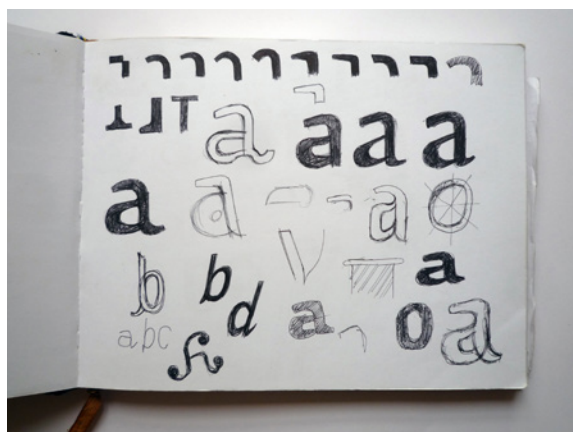 T a a a a
a a a o
b b a
abc d a o a